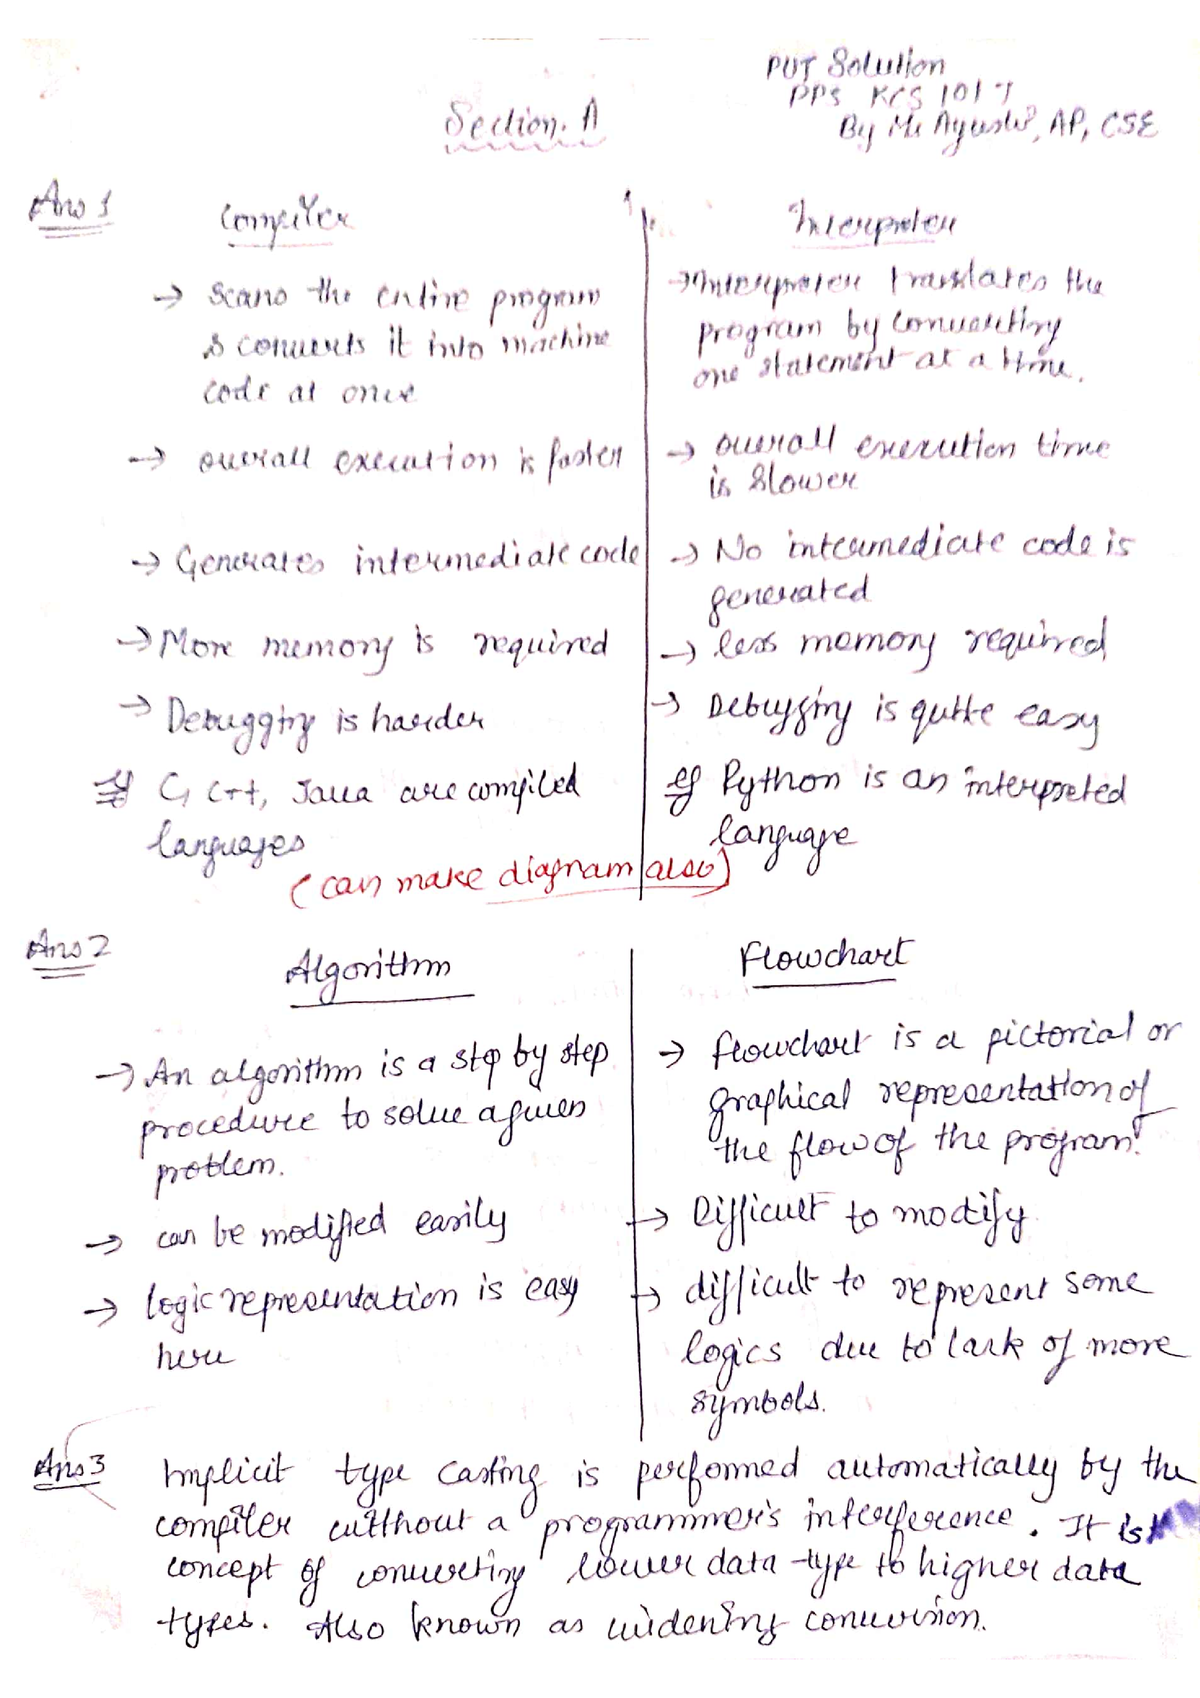 PUT Solution
PPS KCS 101 T
By Ms Ayushi, AP, CSE
Section. A
Ans 1
Compiler
→ Scans the entire program
& converts it into machine
code at once
→ overall execution is faster
→ Generates intermediate code
→ More memory is required
→ Debugging is harder
eg C, C++, Java are compiled
languages
Interpreter
→ Interpreter translates the
program by converting
one statement at a time.
→ overall execution time
is slower
→ No intermediate code is
generated
→ less memory required
→ Debugging is quite easy
eg Python is an interpreted
language
(can make diagram also)
Ans 2
Algorithm
→ An algorithm is a step by step
procedure to solve a given
problem.
→ can be modified easily
→ logic representation is easy
here
Flowchart
→ flowchart is a pictorial or
graphical representation of
the flow of the program.
→ Difficult to modify
→ difficult to represent some
logics due to lack of more
symbols.
Ans 3
Implicit type casting is performed automatically by the
compiler without a programmer's interference. It is
concept of converting lower data type to higher data
types. Also known as widening conversion.